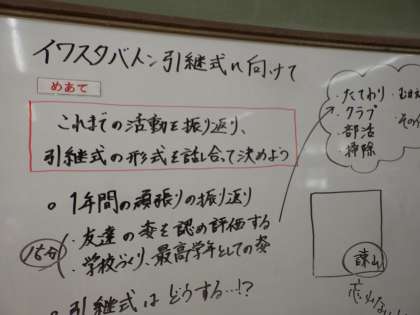 イワスタバトン引継式に向けて
めあて
これまでの活動を振り返り、
引継式の形式を話し合って決めよう
○ 1年間の頑張りの振り返り
・友達の姿を認め評価する
・学校づくり、最高学年としての姿
15分
○ 引継式はどうする…!?
・たてわり
・クラブ
・部活
・掃除